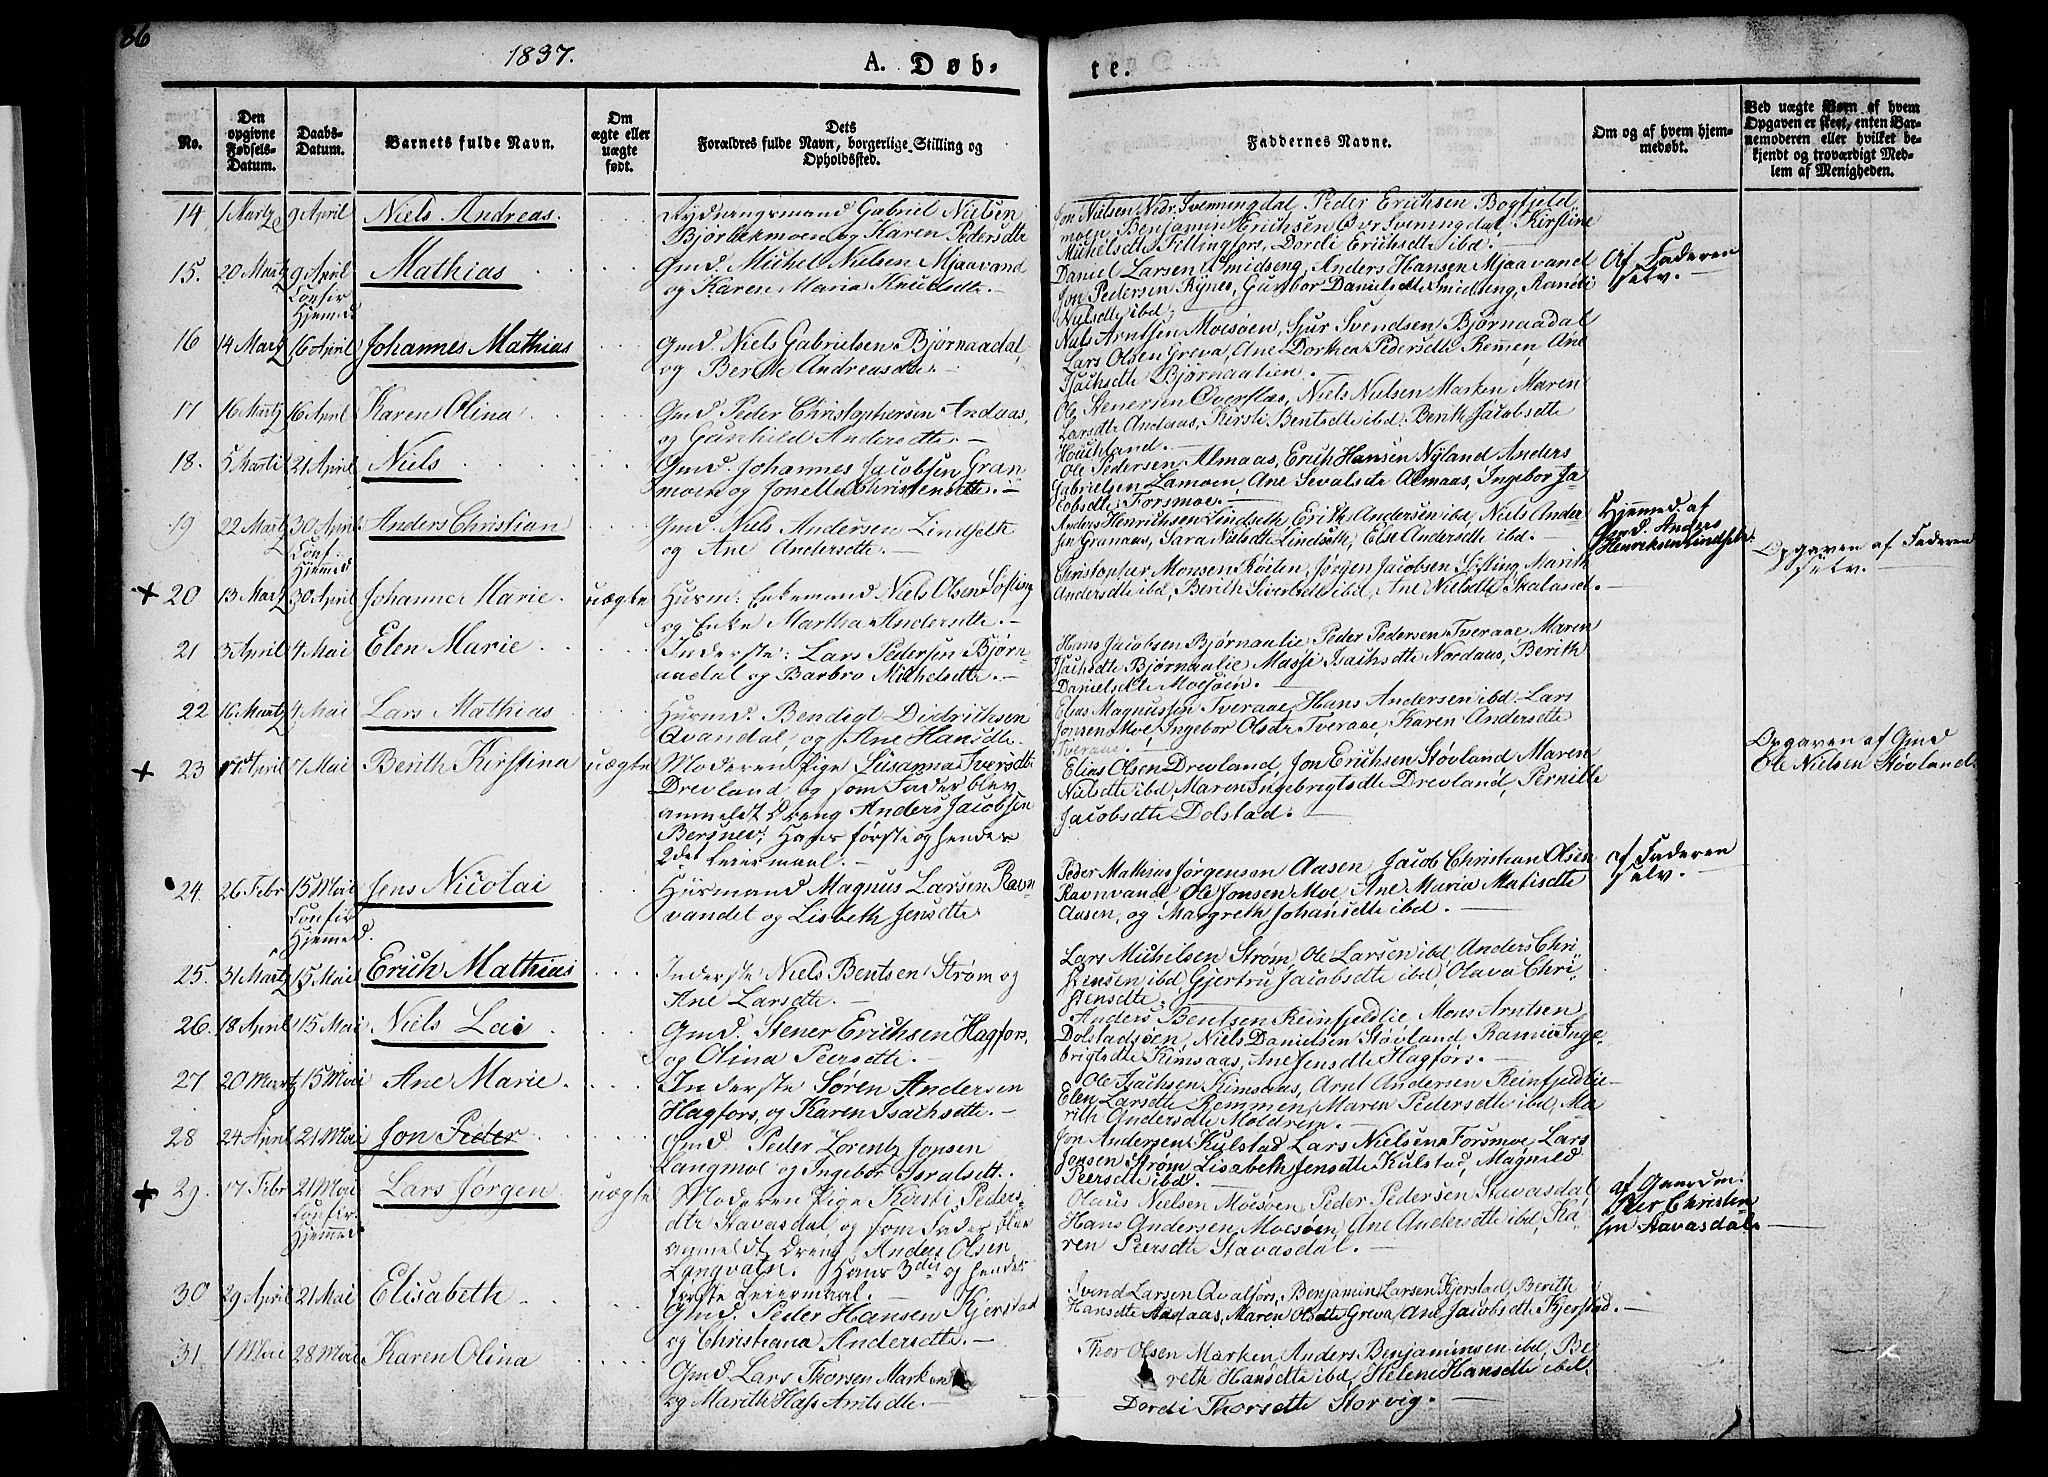 86
1837.
A. Døb-
te.
No.
Den opgivne Fødsels-Datum.
Daabs-Datum.
Barnets fulde Navn.
Om ægte eller uægte født.
Dets Forældres fulde Navn, borgerlige Stilling og Opholdssted.
Faddernes Navne.
Om og af hvem hjem-medøbt.
Ved uægte Børn af hvem Opgaven er skeet, enten Bar-nemoderen eller hvilket be-kjendt og troværdigt Med-lem af Menigheden.
14 1 Martz 9 April Niels Andreas.
Rydningsmand Gabriel Nielsen
Bjørbekmoen og Karen Pedersdtr
Jon Nielsen Nedr. Svenningdal, Peder Erichsen Bogfjeld
moen Benjamin Erichsen Øvr Svenningdal, Kirstine
Michelsdtr Fellingfors, Dordi Erichsdtr ibd.
15. 20 Martz 9 April Confir Hjemmed Mathias
Gmd. Michel Nielsen Mjaavand
og Karen Maria Knudsdtr.
Daniel Larsen Smidseng, Anders Hansen Mjaavand
Jon Pedersen Rynes, Gunbor Danielsdtr Smidseng, Randi
Nielsdtr ibd.
Af Faderen
selv.
16 14 Martz 16 April Johannes Mathias
Gmd. Niels Gabrielsen Bjørnaadal,
og Berith Andreasdtr.
Niels Arntsen Mosøen, Sjur Svendsen Bjørnaadal
Lars Olsen Greva, Ane Dorthea Pedersdtr Remmen, Ane
Isachsdtr Bjørnaalien.
17 16 Martz 16 April Karen Olina
Gmd. Peder Christophersen Andaas,
og Gunhild Andersdtr.
Ole Stenersen Øverflas, Niels Nielsen Marken, Maren
Larsdtr Andaas, Kirsti Bentsdtr ibd, Berith Jacobsdtr
Houchland.
18. 5 Marti 21 April Niels
Gmd. Johannes Jacobsen Gran-
moen og Jonetta Christensdtr.
Ole Pedersen Almaas, Erich Hansen Nyland Anders
Gabrielsen Lamoen, Ane Sevalsdtr Almaas, Ingebor Ja-
cobsdtr Forsmoe.
19 22 Martz 30 April Conf. Hjemmed Anders Christian
Gmd Niels Andersen Lindseth
og Ane Andersdtr.
Anders Henrichsen Lindseth, Erich Andersen ibd, Niels Ander-
sen Granaas, Sara Nielsdtr Lindseth, Else Andersdtr ibd.
Hjemmed af
Gmd. Anders
Henriksen Lindseth.
+ 20 13 Martz 30 April Johanne Marie. uægte
Husm: Enkemand Niels Olsen Softing
og Enke Martha Andersdtr.
Christopher Monsen Røilen, Jørgen Jacobsen Søfting, Marith
Andersdtr ibd, Berith Siversdtr ibd, Ane Nielsdtr Skaland.
Opgaven af Faderen
selv.
21 5 April 4 Mai Elen Marie
Inderste: Lars Pedersen Bjørn-
aadal og Barbro Michelsdtr.
Hans Jacobsen Bjørnaalie Peder Pedersen Tveraae Maren
Isachsdtr Bjørnaalie Massi Isachsdtr Nordaas, Berith
Danielsdtr Mosøen.
22 16 Martz 4 Mai Lars Mathias
Husmd. Bendigt Didrichsen
Qvandal, og Ane Hansdtr.
Elias Magnussen Tveraae, Hans Andersen ibd, Lars
Jonsen Moe, Ingebor Olsdtr Tveraae, Karen Andersdtr
Tveraae.
+ 23 17 April 7 Mai Berith Kirstina uægte
Moderen Pige Susanna Iversdtr
Drevland og som Fader blev
anmeldt Dreng Anders Jacobsen
Bersnev. Hans første og hendes
2det Leiermaal.
Elias Olsen Drevland, Jon Erichsen Støvland Maren
Nielsdtr ibd, Maren Ingebrigtsdtr Drevland, Pernille
Jacobsdtr Dolstad.
Opgaven af Gmd
Ole Nielsen Støvland.
24. 26 Febr 15 Mai Confir Hjemmed. Jens Nicolai
Husmand Magnus Larsen Ravn
vandet og Lisbeth Jensdtr
Peder Mathias Jørgensen Aasen, Jacob Christian Olsen
Ravnvand, Ole Jonsen Moe, Ane Maria Matisdtr
Aasen, og Margreth Johansdtr ibd.
af Faderen
selv.
25. 31 Martz 15 Mai Erich Mathias
Inderste Niels Bentsen Strøm og
Ane Larsdtr.
Lars Michelsen Strøm Ole Larsen ibd Anders Chri-
stensen ibd, Gjertru Jacobsdtr ibd, Olava Chri-
stensdtr.
26. 18 April 15 Mai Niels Lai
Gmd. Stener Erichsen Hagfors,
og Olina Peersdtr.
Anders Bentsen Reinfjeldlie Mons Arntsen
Dolstadsøen, Niels Danielsen Støvland, Rannia Inge-
brigtsdtr Kimsaas, Ane Jensdtr Hagfors.
27 20 Martz 15 Mai Ane Marie.
Inderste Søren Andersen
Hagfors, og Karen Isachsdtr.
Ole Isachsen Kimsaas, Arnt Andersen Reinfjeldlie
Elen Larsdtr Remmen, Maren Pedersdtr ibd, Ma-
rith Andersdtr Moldrem.
28 24 April 21 Mai Jon Peder
Gmd. Peder Lorentz Jonsen
Langmoe og Ingebor Isralsdtr.
Jon Andersen Kulstad Lars Nielsen Forsmoe, Lars
Jonsen Strøm Lisabeth Jensdtr Kulstad, Magnild
Peersdtr ibd.
+ 29. 17 Febr 21 Mai Confir. Hjemmed Lars Jørgen uægte
Moderen Pige Kirsti Peders-
dtr Stavasdal, og som Fader bler
anmeldt Dreng Anders Olsen
Langvatn. Hans 3die og hendes
første Leiermaal.
Olaus Nielsen Mosøen, Peder Pedersen Stavasdal,
Hans Andersen Mosøen, Ane Andersdtr ibd, Ka-
ren Peersdtr Stavasdal.
af Gaardm.
Peer Christen
sen Stavasdal
30 29 April 21 Mai Elisabeth
Gmd. Peder Hansen Kjerstad
og Christiana Andersdtr.
Svend Larsen Qvalfors, Benjamin Larsen Kjerstad, Berith
Hansdtr Andaas, Maren Olsdtr Greva, Ane Jacobsdtr Kjerstad.
31. 1 Mai 28 Mai Karen Olina
Gmd. Lars Thorsen Marken
og Marith Hass Arntsdtr.
Thor Olsen Marken, Anders Benjaminsen ibd, Be-
reth Hansdtr ibd, Helene Hansdtr ibd
Dordi Thorsdtr Storvig.